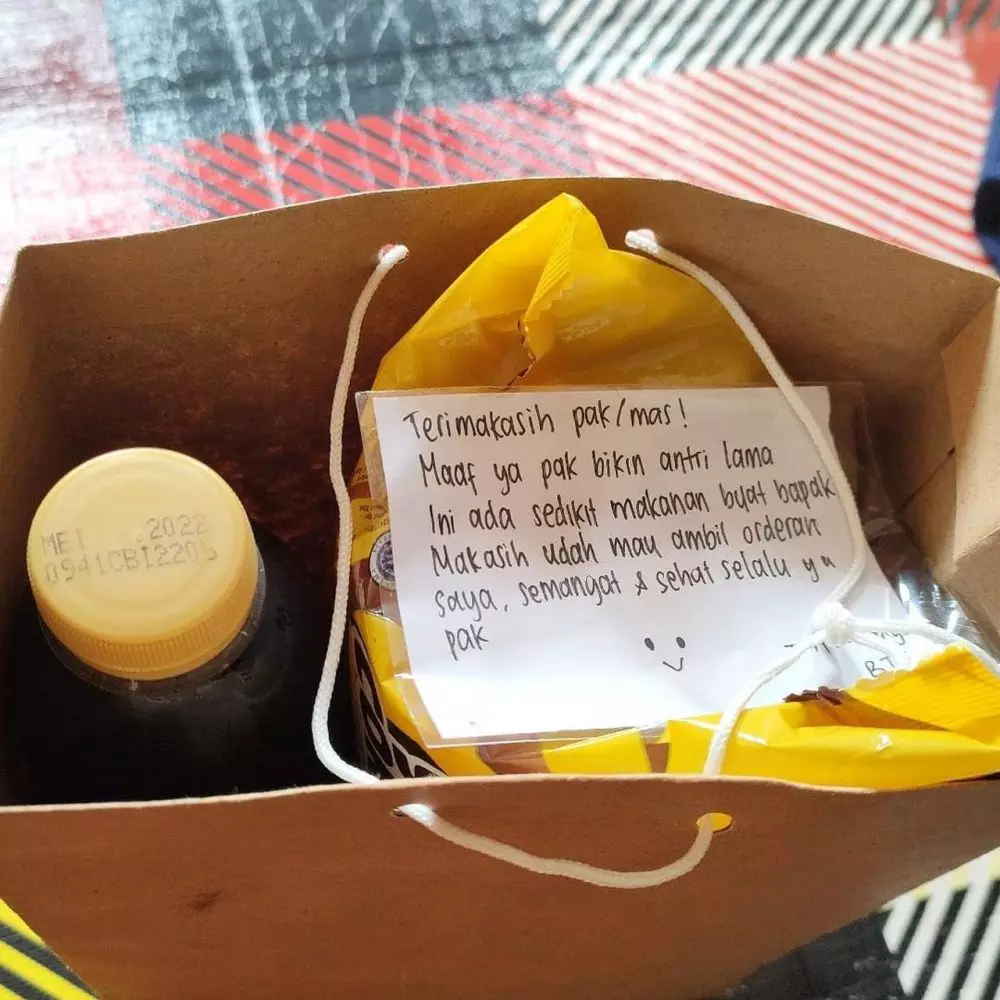 MEI .2022
0941CBI2205
Terimakasih pak/mas!
Maaf ya pak bikin antri lama
Ini ada sedikit makanan buat bapak
Makasih udah mau ambil orderan
saya, semangat & sehat selalu ya
pak